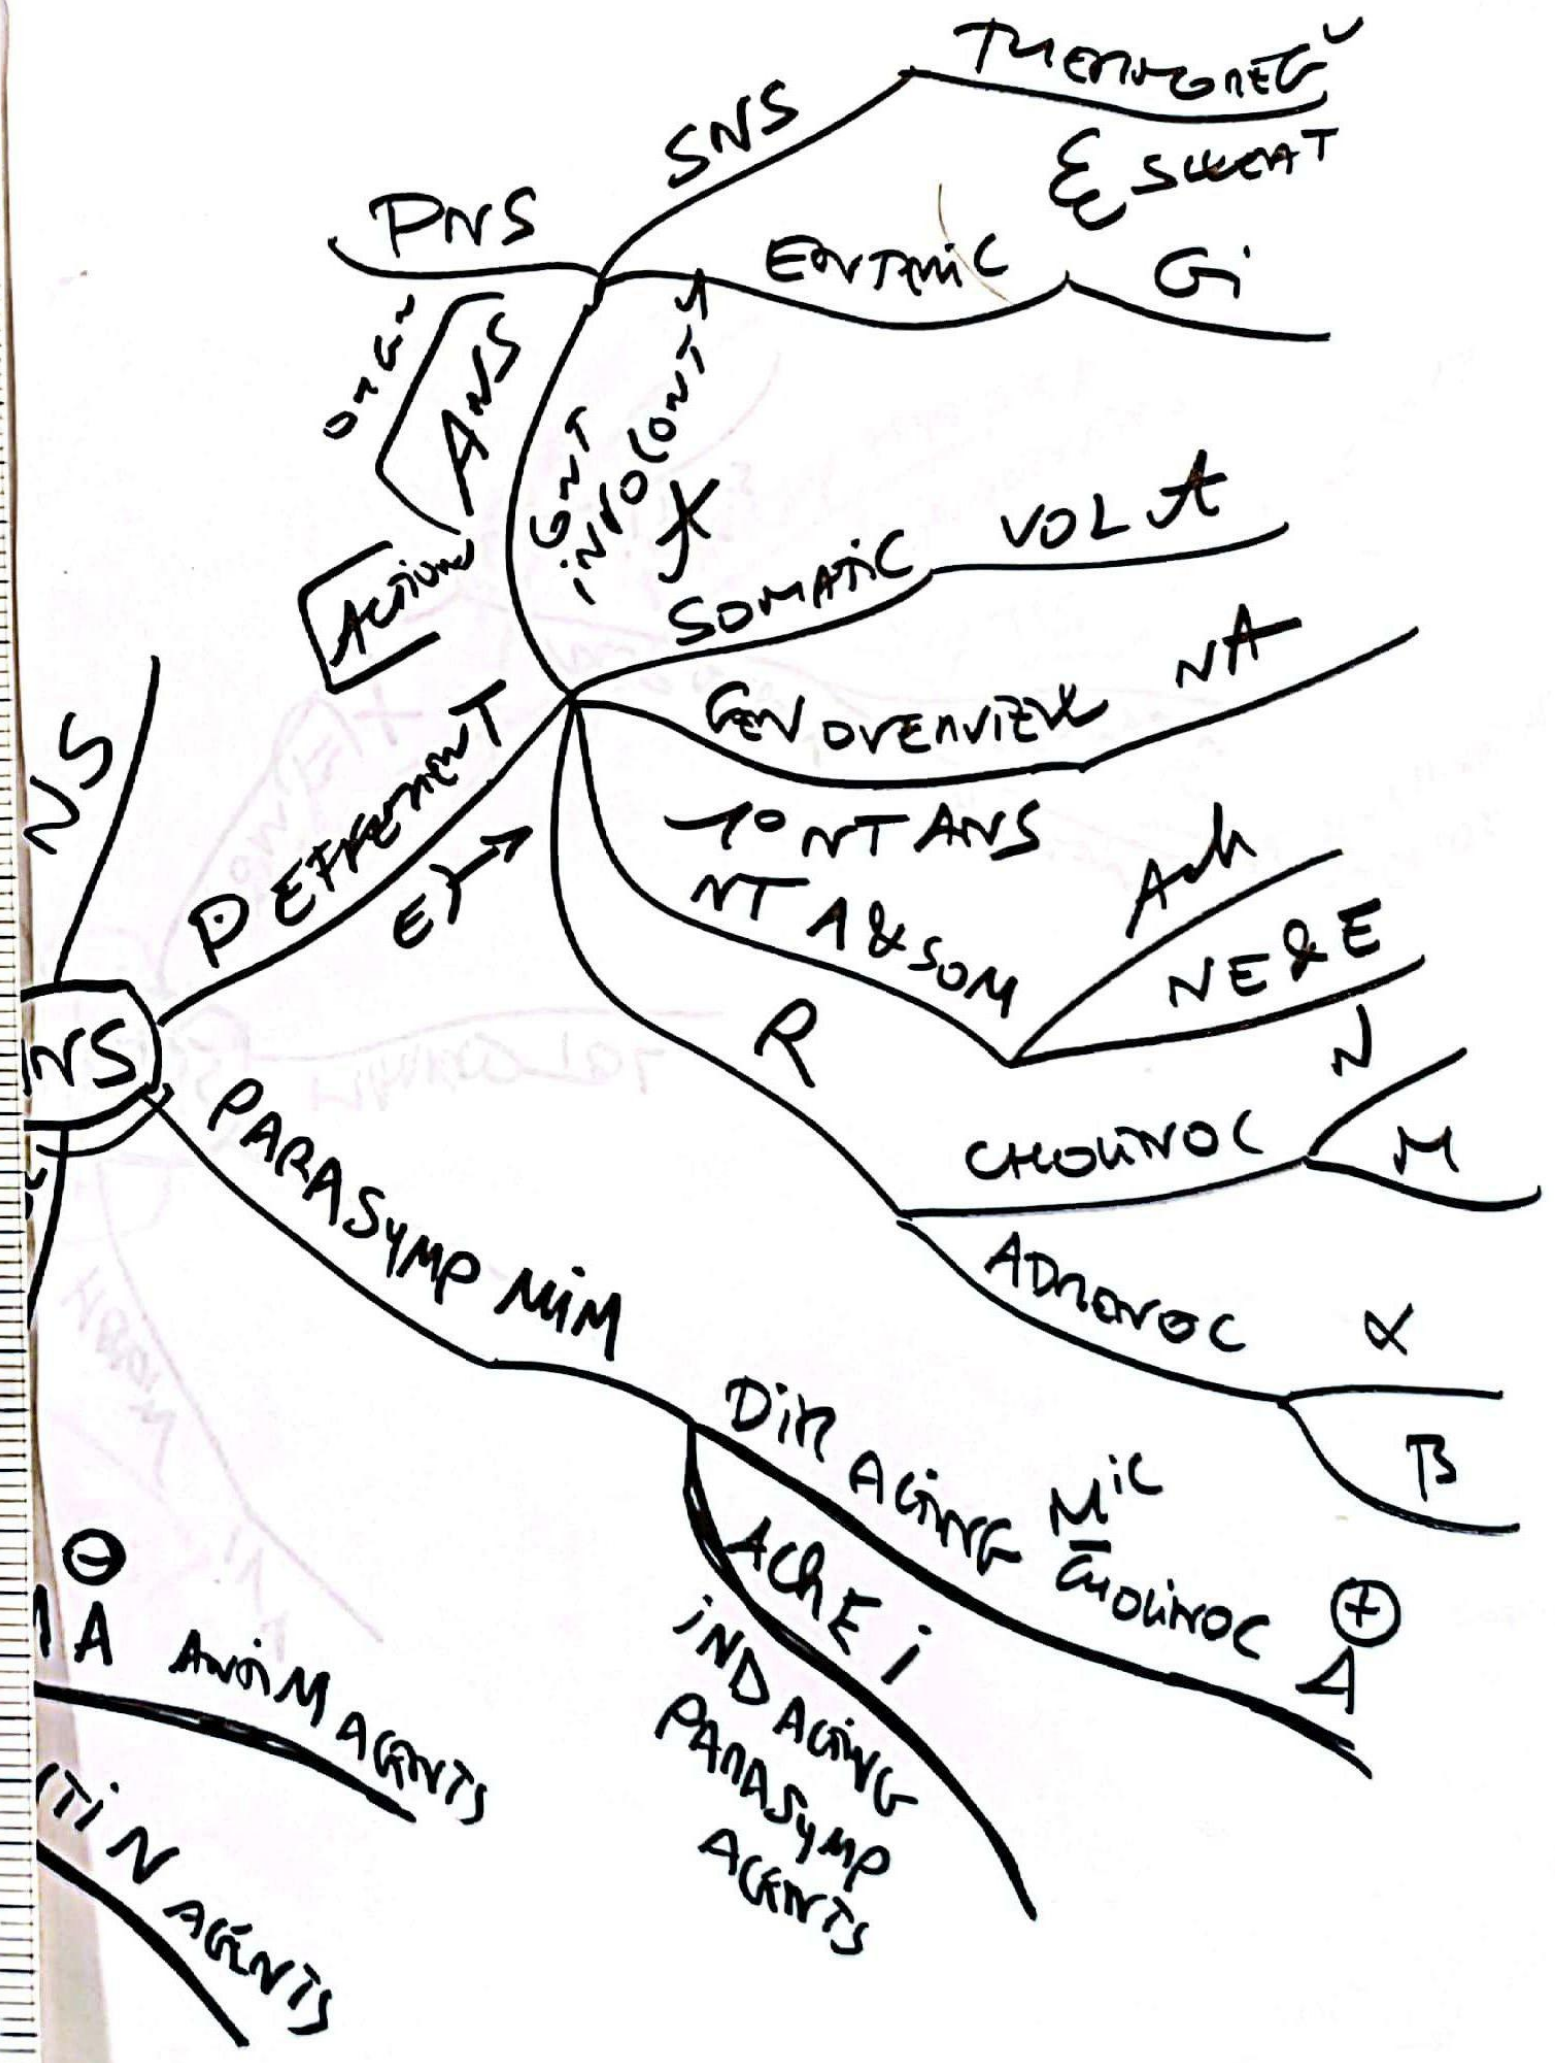 THERMOREG
& SWEAT
SNS
PNS
ENTERIC
Gi
ORGN
ANS
ACTIONS
INVO CONT
SOMATIC
VOL A
GEN OVERVIEW
NA
NS
P EFFERENT
1° NT ANS
NT A & SOM
Ach
NE & E
R
N
CHOLINOC
M
NS
ADRENOC
α
B
PARASYMP MIM
DIR ACTING
Mic
CHOLINOC
+
A
AChE i
IND ACTING
PARASYMP
AGENTS
A ANTIM AGENTS
TiN AGENTS